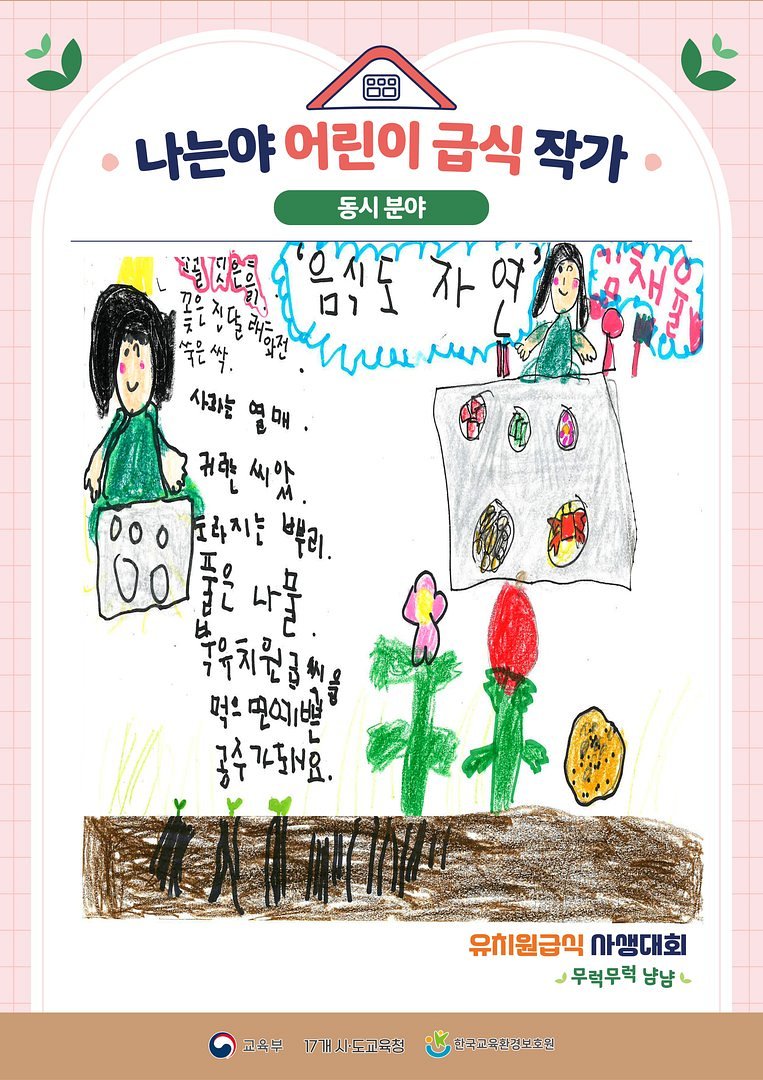 나는야 어린이 급식 작가
동시 분야
'음식도 자연'
채율
꽃은 진달래
화전
쑥은 싹.
사과는 열매.
귀리는 씨앗.
도라지는 뿌리.
풀은 나물.
유치원급식을
먹으면 예쁜
공주가 돼요.
유치원급식 사생대회
무럭무럭 냠냠
교육부 17개 시·도교육청 한국교육환경보호원